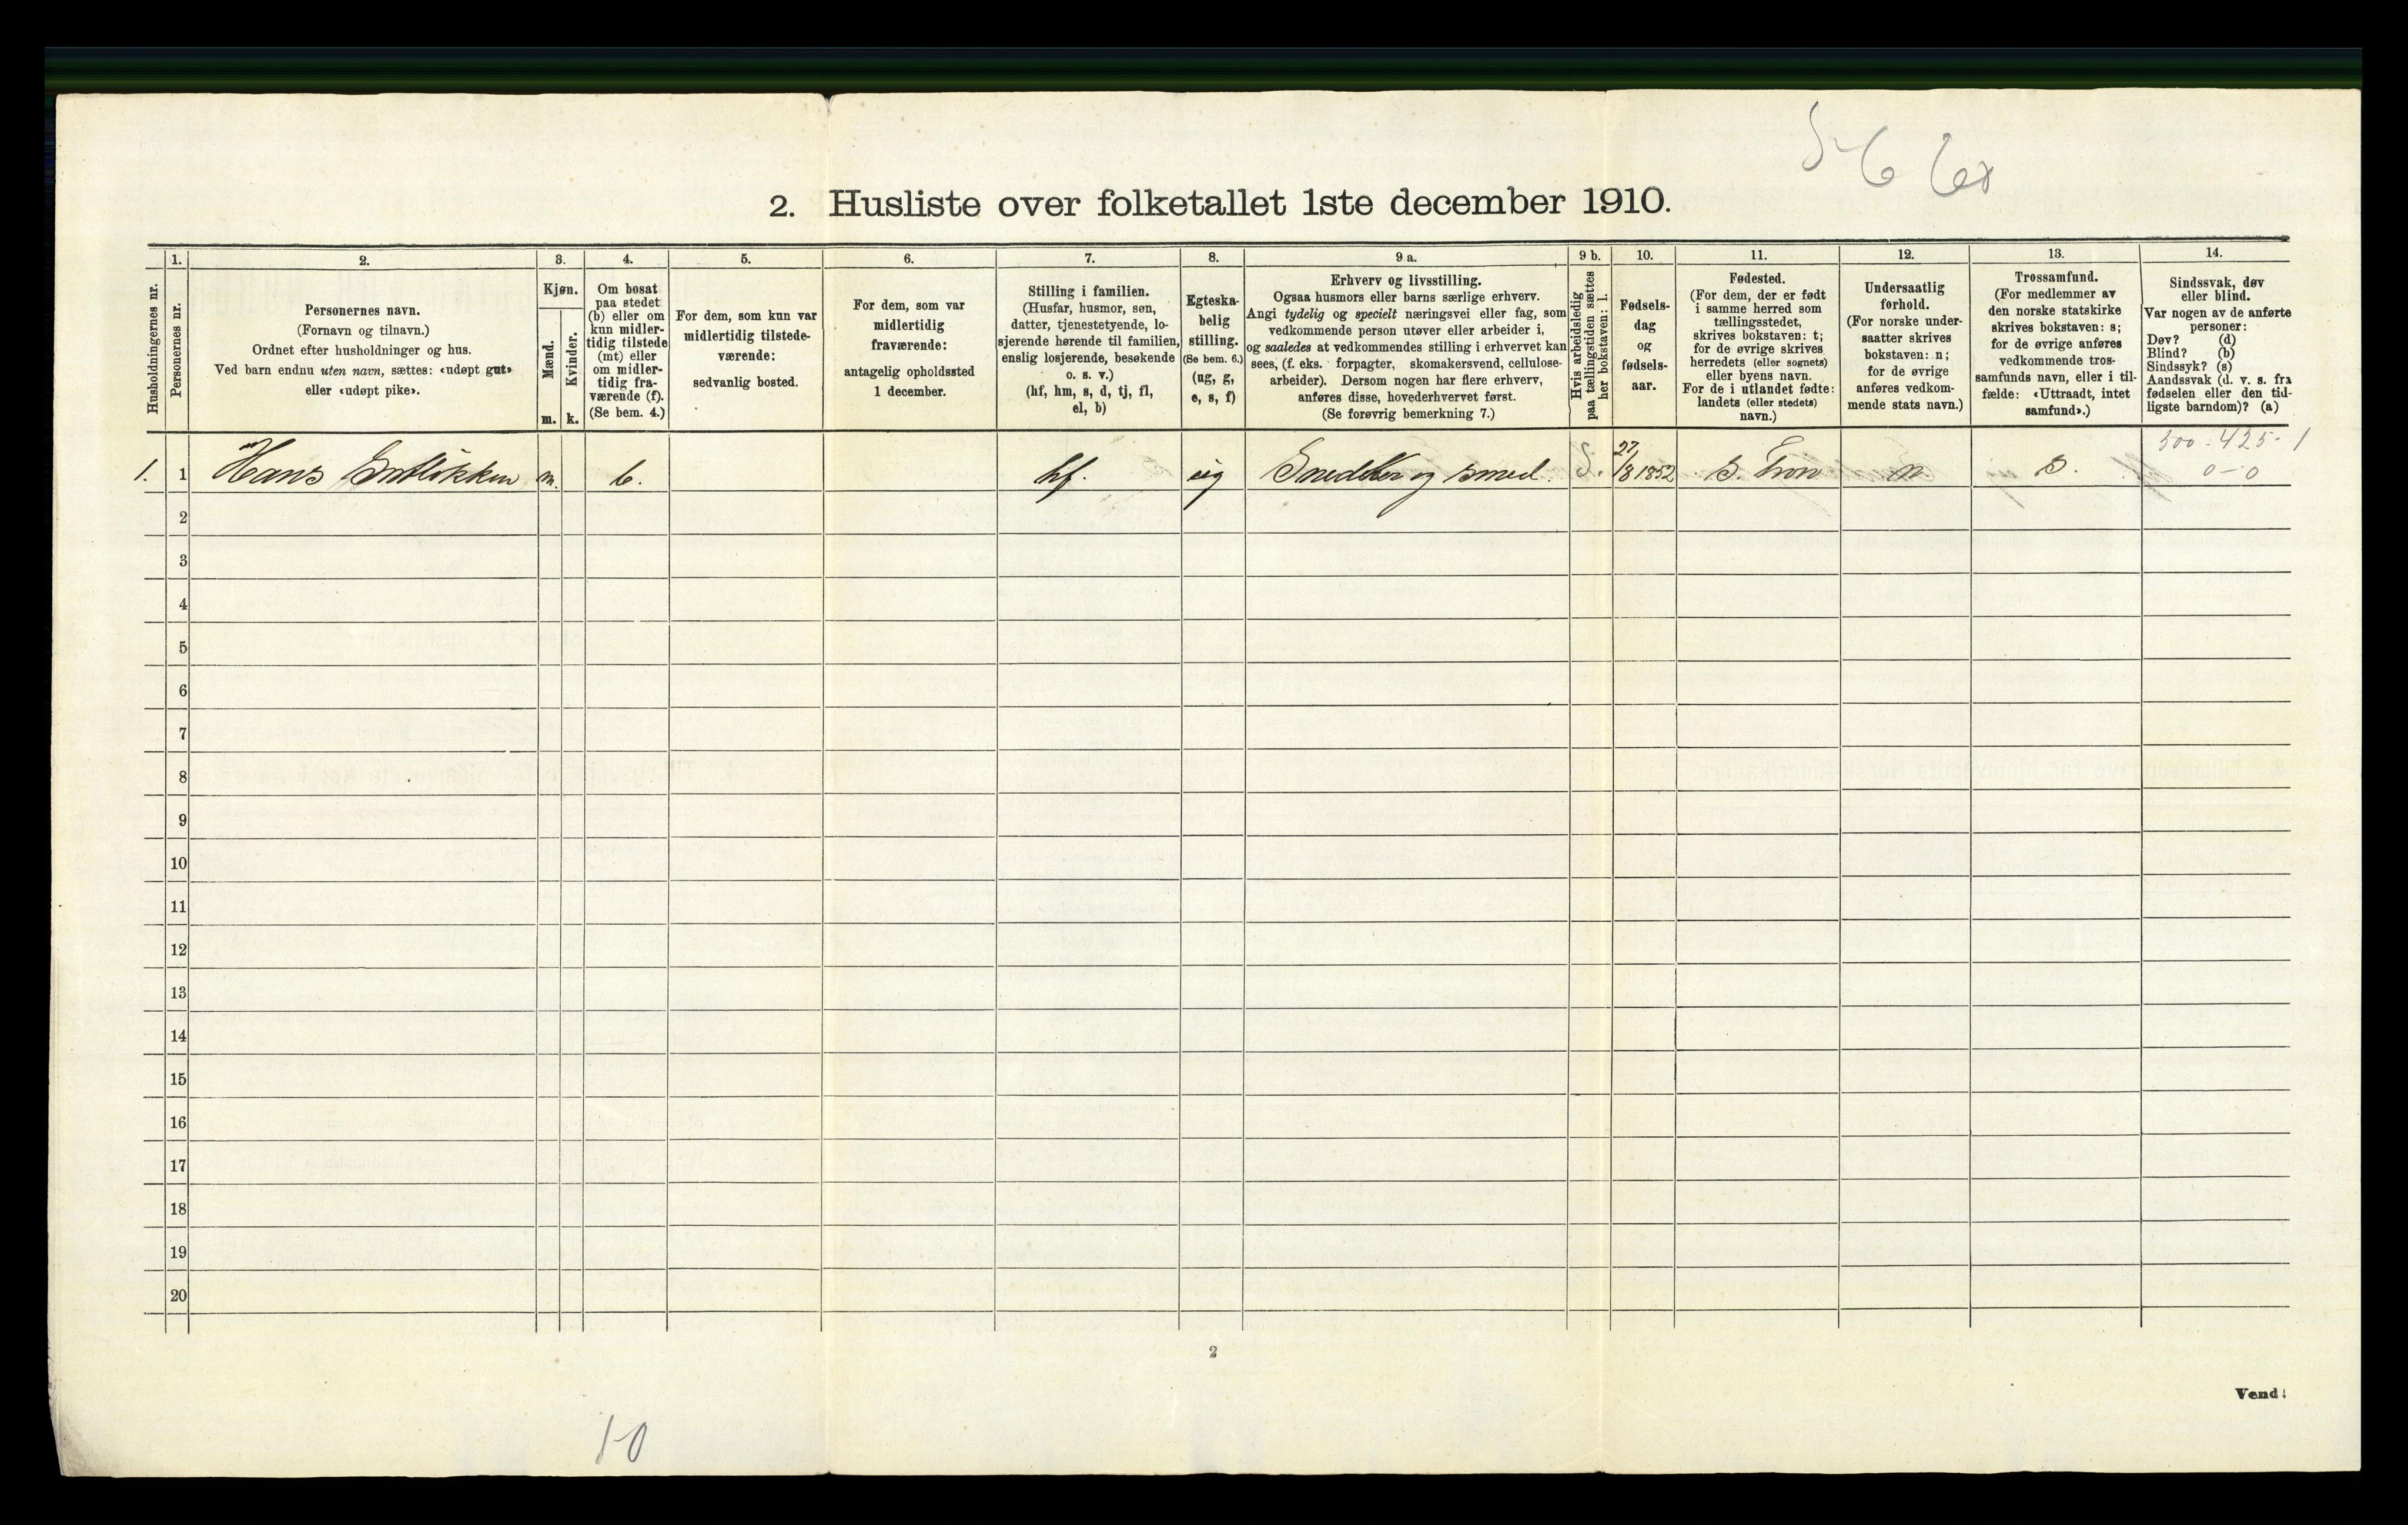 2. Husliste over folketallet 1ste december 1910.
Husholdningernes nr.
1.
Personernes nr.
2.
Personernes navn.
(Fornavn og tilnavn.)
Ordnet efter husholdninger og hus.
Ved barn endnu uten navn, sættes: «udøpt gut»
eller «udøpt pike».
3.
Kjøn.
Mænd.
m.
Kvinder.
k.
4.
Om bosat
paa stedet
(b) eller om
kun midler-
tidig tilstede
(mt) eller
om midler-
tidig fra-
værende (f).
(Se bem. 4.)
5.
For dem, som kun var
midlertidig tilstede-
værende:
sedvanlig bosted.
6.
For dem, som var
midlertidig
fraværende:
antagelig opholdssted
1 december.
7.
Stilling i familien.
(Husfar, husmor, søn,
datter, tjenestetyende, lo-
sjerende hørende til familien,
enslig losjerende, besøkende
o. s. v.)
(hf, hm, s, d, tj, fl,
el, b)
8.
Egteska-
belig
stilling.
(Se bem. 6.)
(ug, g,
e, s, f)
9 a.
Erhverv og livsstilling.
Ogsaa husmors eller barns særlige erhverv.
Angi tydelig og specielt næringsvei eller fag, som
vedkommende person utøver eller arbeider i,
og saaledes at vedkommendes stilling i erhvervet kan
sees, (f. eks. forpagter, skomakersvend, cellulose-
arbeider). Dersom nogen har flere erhverv,
anføres disse, hovederhvervet først.
(Se forøvrig bemerkning 7.)
9 b.
Hvis arbeidsledig
paa tællingstiden sættes
her bokstaven: l.
10.
Fødsels-
dag
og
fødsels-
aar.
11.
Fødested.
(For dem, der er født
i samme herred som
tællingsstedet,
skrives bokstaven: t;
for de øvrige skrives
herredets (eller sognets)
eller byens navn.
For de i utlandet fødte:
landets (eller stedets)
navn.)
12.
Undersaatlig
forhold.
(For norske under-
saatter skrives
bokstaven: n;
for de øvrige
anføres vedkom-
mende stats navn.)
13.
Trossamfund.
(For medlemmer av
den norske statskirke
skrives bokstaven: s;
for de øvrige anføres
vedkommende tros-
samfunds navn, eller i til-
fælde: «Uttraadt, intet
samfund».)
14.
Sindssvak, døv
eller blind.
Var nogen av de anførte
personer:
Døv? (d)
Blind? (b)
Sindssyk? (s)
Aandssvak (d. v. s. fra
fødselen eller den tid-
ligste barndom)? (a)
500-425-1
0-0
1. 1 Hans m. b. hf. ug Snedker og smed. S. 27/8 1852 S. Fron n. s.
2
3
4
5
6
7
8
9
10
11
12
13
14
15
16
17
18
19
20
2
Vend!
1-0